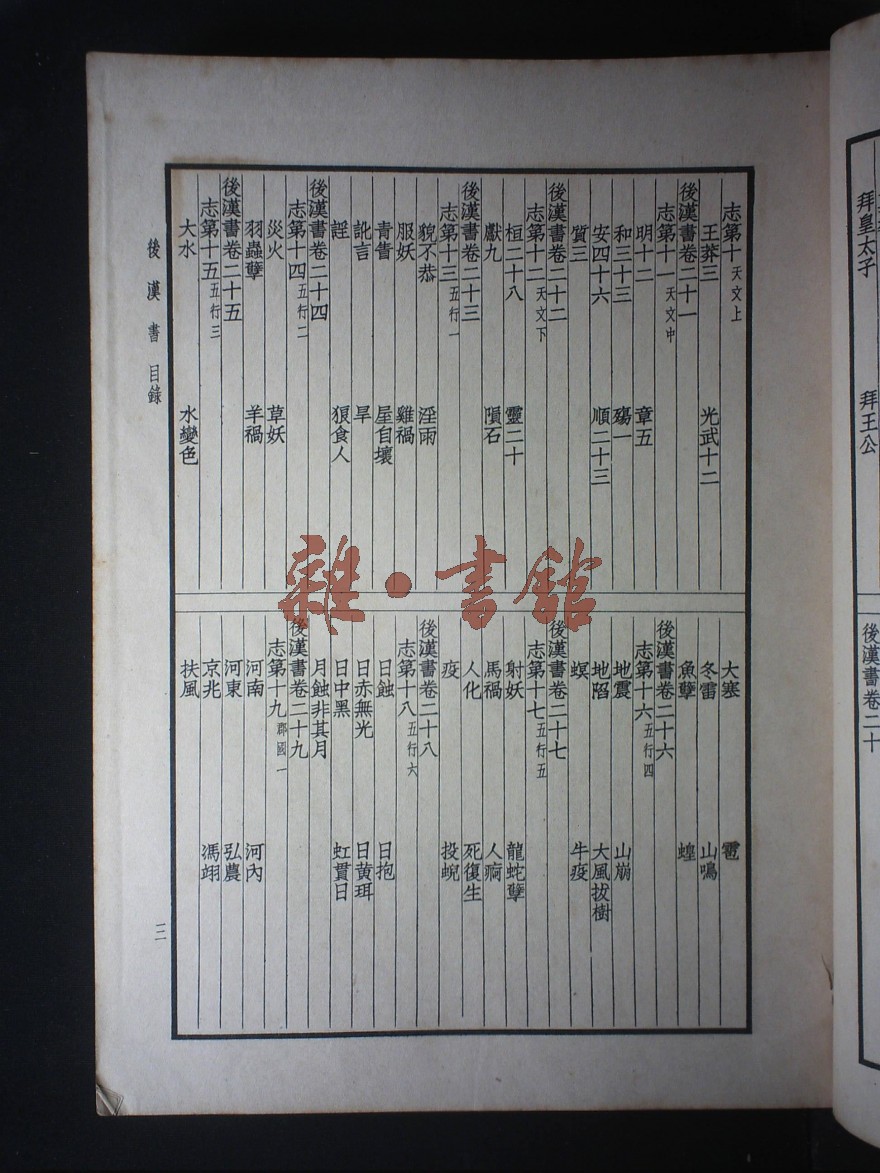 拜皇太子 拜王公
後漢書卷二十
志第十 天文上
王莽三 光武十二
後漢書卷二十一
志第十一 天文中
明十二 章五
和三十三 殤一
安四十六 順二十三
質三
後漢書卷二十二
志第十二 天文下
桓二十八 靈二十
獻九 隕石
後漢書卷二十三
志第十三 五行一
貌不恭 淫雨
服妖 雞禍
青眚 屋自壞
訛言 旱
謠 狼食人
後漢書卷二十四
志第十四 五行二
災火 草妖
羽蟲孽 羊禍
後漢書卷二十五
志第十五 五行三
大水 水變色
大寒 雹
冬雷 山鳴
魚孽 蝗
後漢書卷二十六
志第十六 五行四
地震 山崩
地陷 大風拔樹
螟 牛疫
後漢書卷二十七
志第十七 五行五
射妖 龍蛇孽
馬禍 人痾
人化 死復生
疫 投蜺
後漢書卷二十八
志第十八 五行六
日蝕 日抱
日赤無光 日黃珥
日中黑 虹貫日
月蝕非其月
後漢書卷二十九
志第十九 郡國一
河南 河內
河東 弘農
京兆 馮翊
扶風
後漢書 目錄
三
雜·書館